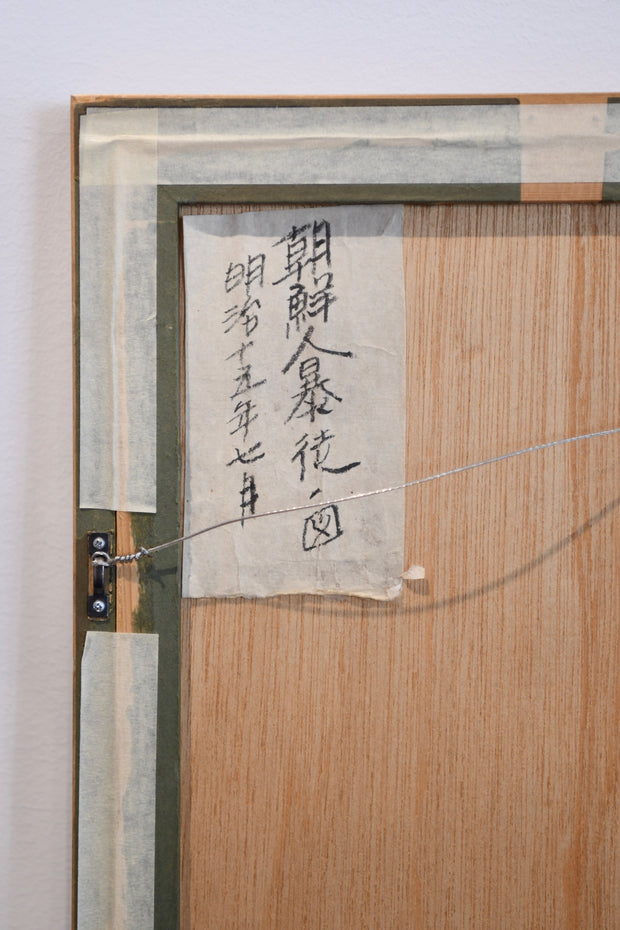 朝鮮人暴徒ノ図
明治十五年七月